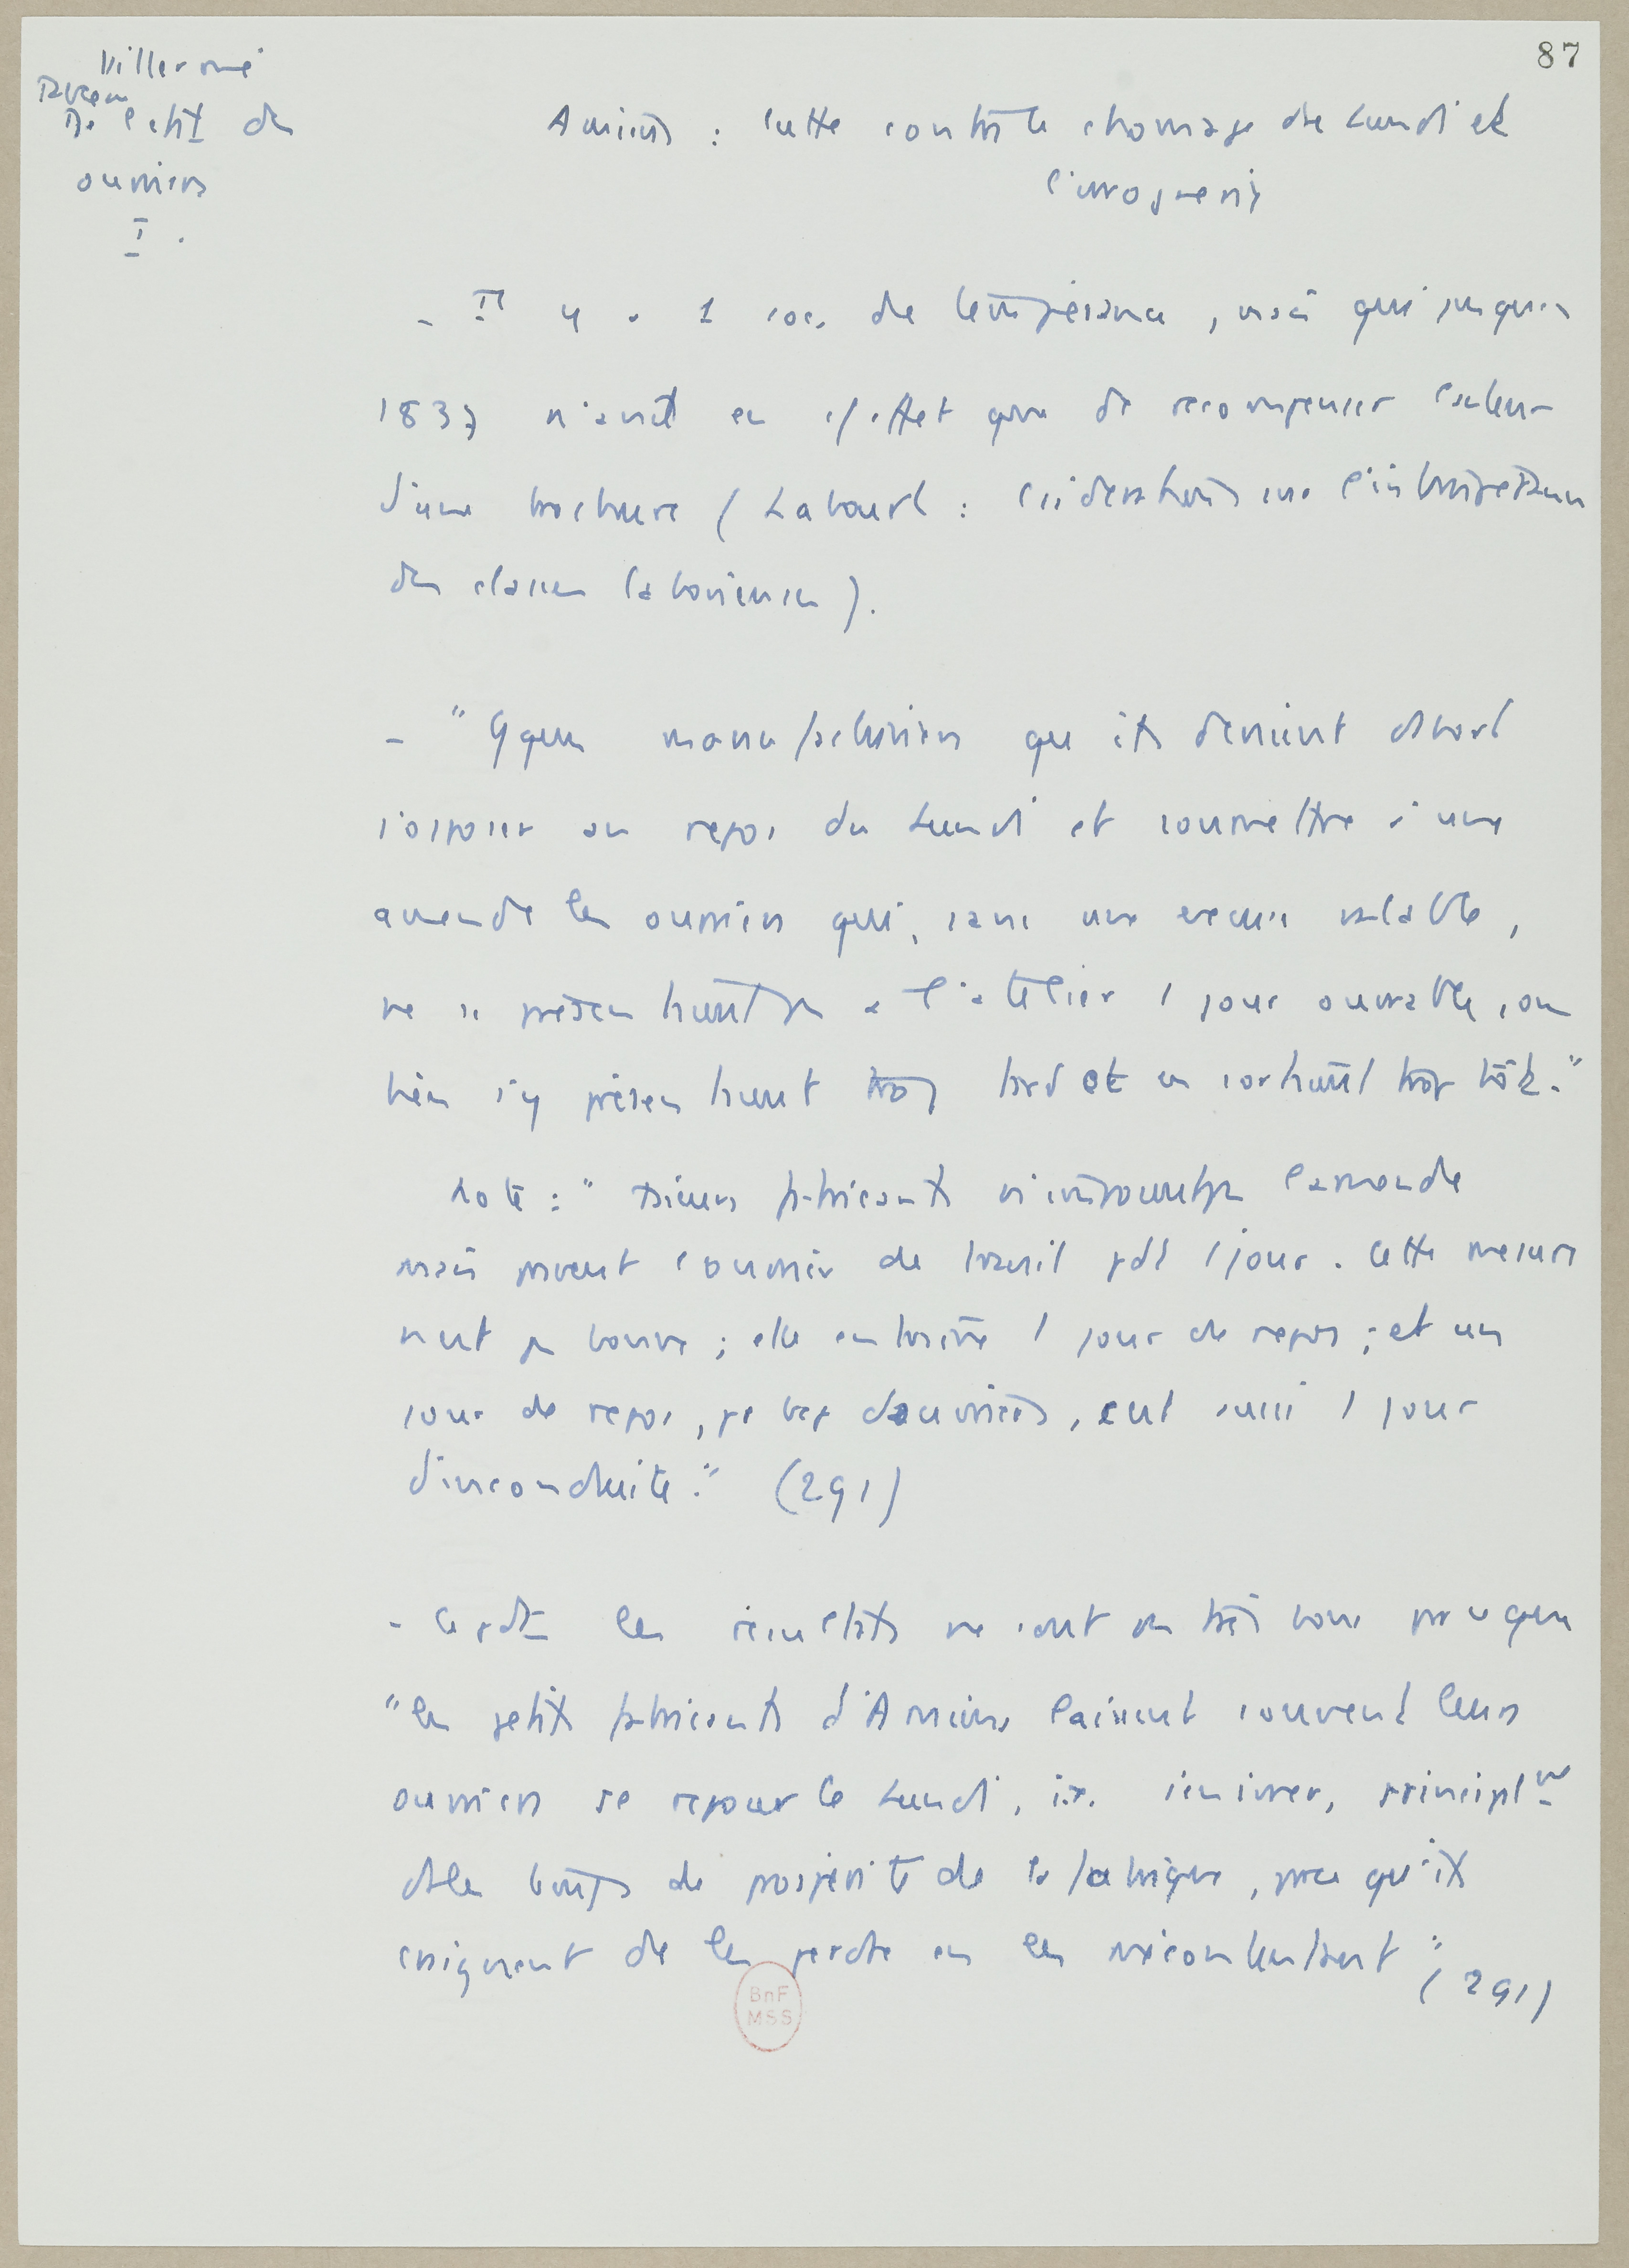 87
Villermé
Tableau
De l'etat des
ouvriers
I.
Amiens : lutte contre le chomage du Lundi et
l'ivrognerie
- Il y a 1 soc. de tempérance, mais qui jusqu'en
1837 n'avait eu d'effet que de recompenser l'auteur
d'une brochure (Labourt : Considerations sur l'intempérance
des classes laborieuses).
- "Qques manufacturiers que ils devaient d'abord
s'opposer au repos du Lundi et soumettre à une
amende les ouvriers qui, sans une excuse valable,
ne se présentaient pas à l'atelier 1 jour ouvrable, ou
bien s'y présentaient trop tard et en sortaient trop tôt."
Note : " Plusieurs fabricants n'imposent pas l'amende
mais privent l'ouvrier de travail pdt 1 jour. Cette mesure
n'est pas bonne ; elle entraîne 1 jour de repos ; et un
jour de repos, pr bcp d'ouvriers, est aussi 1 jour
d'inconduite." (291)
- Cepdt les résultats ne sont pas très bons parce que
"les petits fabricants d'Amiens laissent souvent leurs
ouvriers se reposer le Lundi, i.e. s'enivrer, principlmt
ds les temps de prospérité de la fabrique, parce qu'ils
craignent de les perdre en les mécontentant" (291)
BnF
MSS